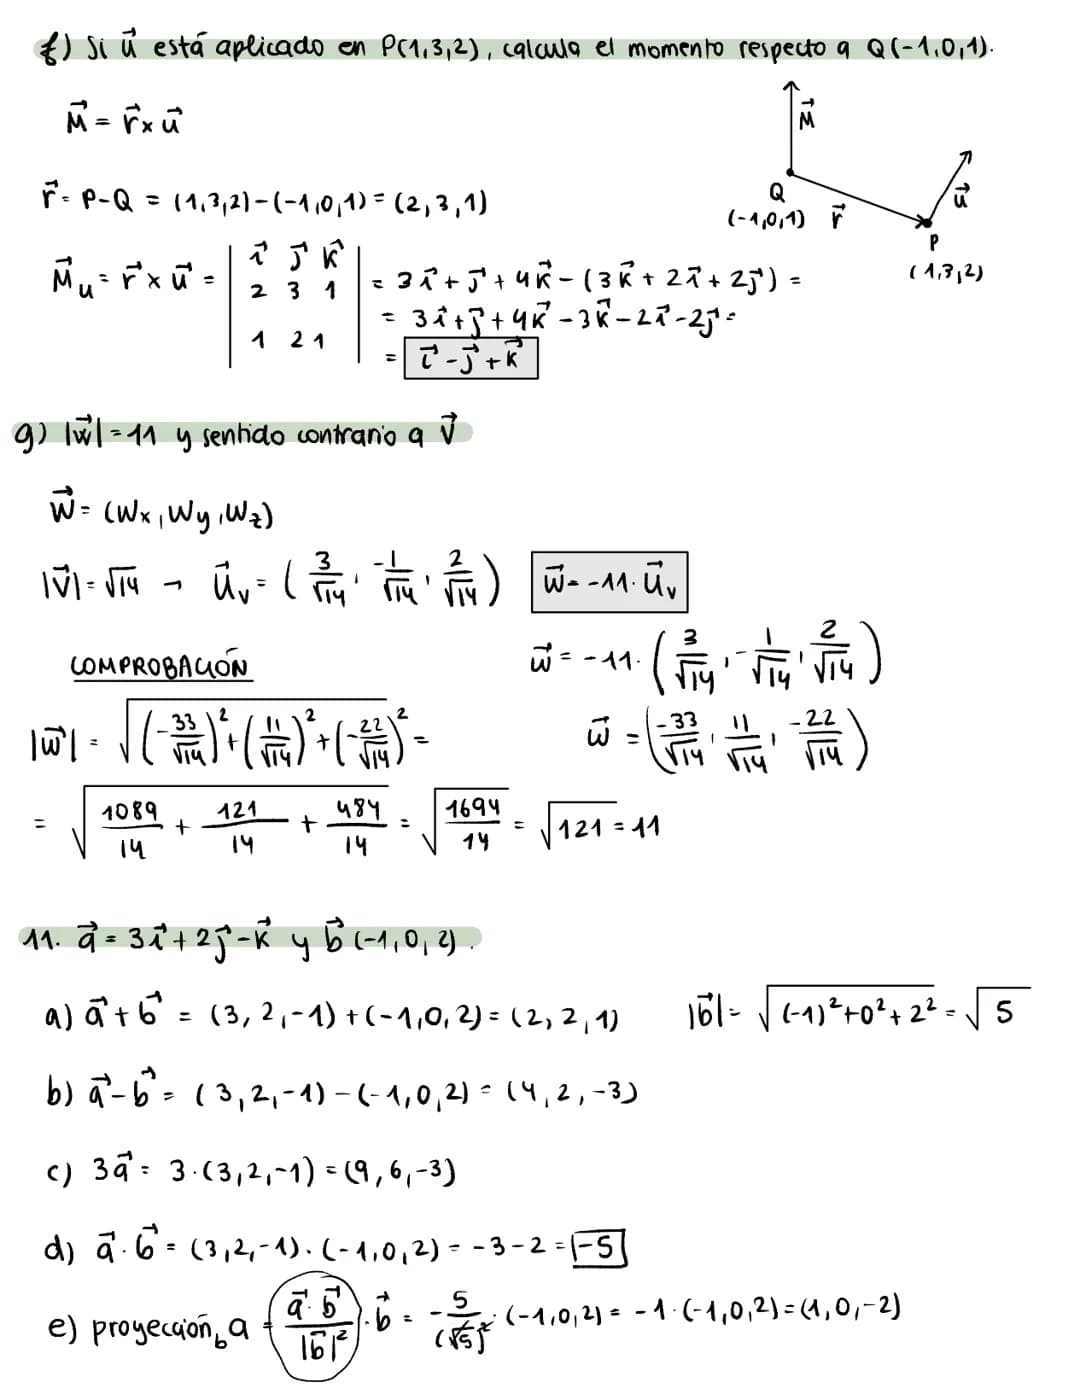 f) Si u⃗ está aplicado en P(1,3,2), calcula el momento respecto a Q(-1,0,1).
M⃗ = r⃗ x u⃗
M⃗
r⃗ = P-Q = (1,3,2)-(-1,0,1) = (2,3,1)
Q
(-1,0,1) r⃗
u⃗
P
(1,3,2)
M⃗u = r⃗ x u⃗ = | i⃗ j⃗ k⃗ |
| 2 3 1 | = 3i⃗ + j⃗ + 4k⃗ - (3k⃗ + 2i⃗ + 2j⃗) =
= 3i⃗ + j⃗ + 4k⃗ - 3k⃗ - 2i⃗ - 2j⃗ =
| 1 2 1 | = i⃗ - j⃗ + k⃗
g) |w⃗| = 11 y sentido contrario a v⃗
w⃗ = (Wx, Wy, Wz)
|v⃗| = √14 → u⃗v = (3/√14, -1/√14, 2/√14) w⃗ = -11 · u⃗v
COMPROBACIÓN
w⃗ = -11 · (3/√14, -1/√14, 2/√14)
|w⃗| = √((-33/√14)² + (11/√14)² + (-22/√14)²) =
w⃗ = (-33/√14, 11/√14, -22/√14)
= √(1089/14 + 121/14 + 484/14) = √(1694/14) = √121 = 11
11. a⃗ = 3i⃗ + 2j⃗ - k⃗ y b⃗ (-1,0,2).
a) a⃗ + b⃗ = (3,2,-1) + (-1,0,2) = (2,2,1) |b⃗| = √((-1)² + 0² + 2²) = √5
b) a⃗ - b⃗ = (3,2,-1) - (-1,0,2) = (4,2,-3)
c) 3a⃗ = 3·(3,2,-1) = (9,6,-3)
d) a⃗ · b⃗ = (3,2,-1) · (-1,0,2) = -3-2 = -5
e) proyección b a = (a⃗ · b⃗ / |b⃗|²) · b⃗ = -5/(√5)² · (-1,0,2) = -1·(-1,0,2) = (1,0,-2)